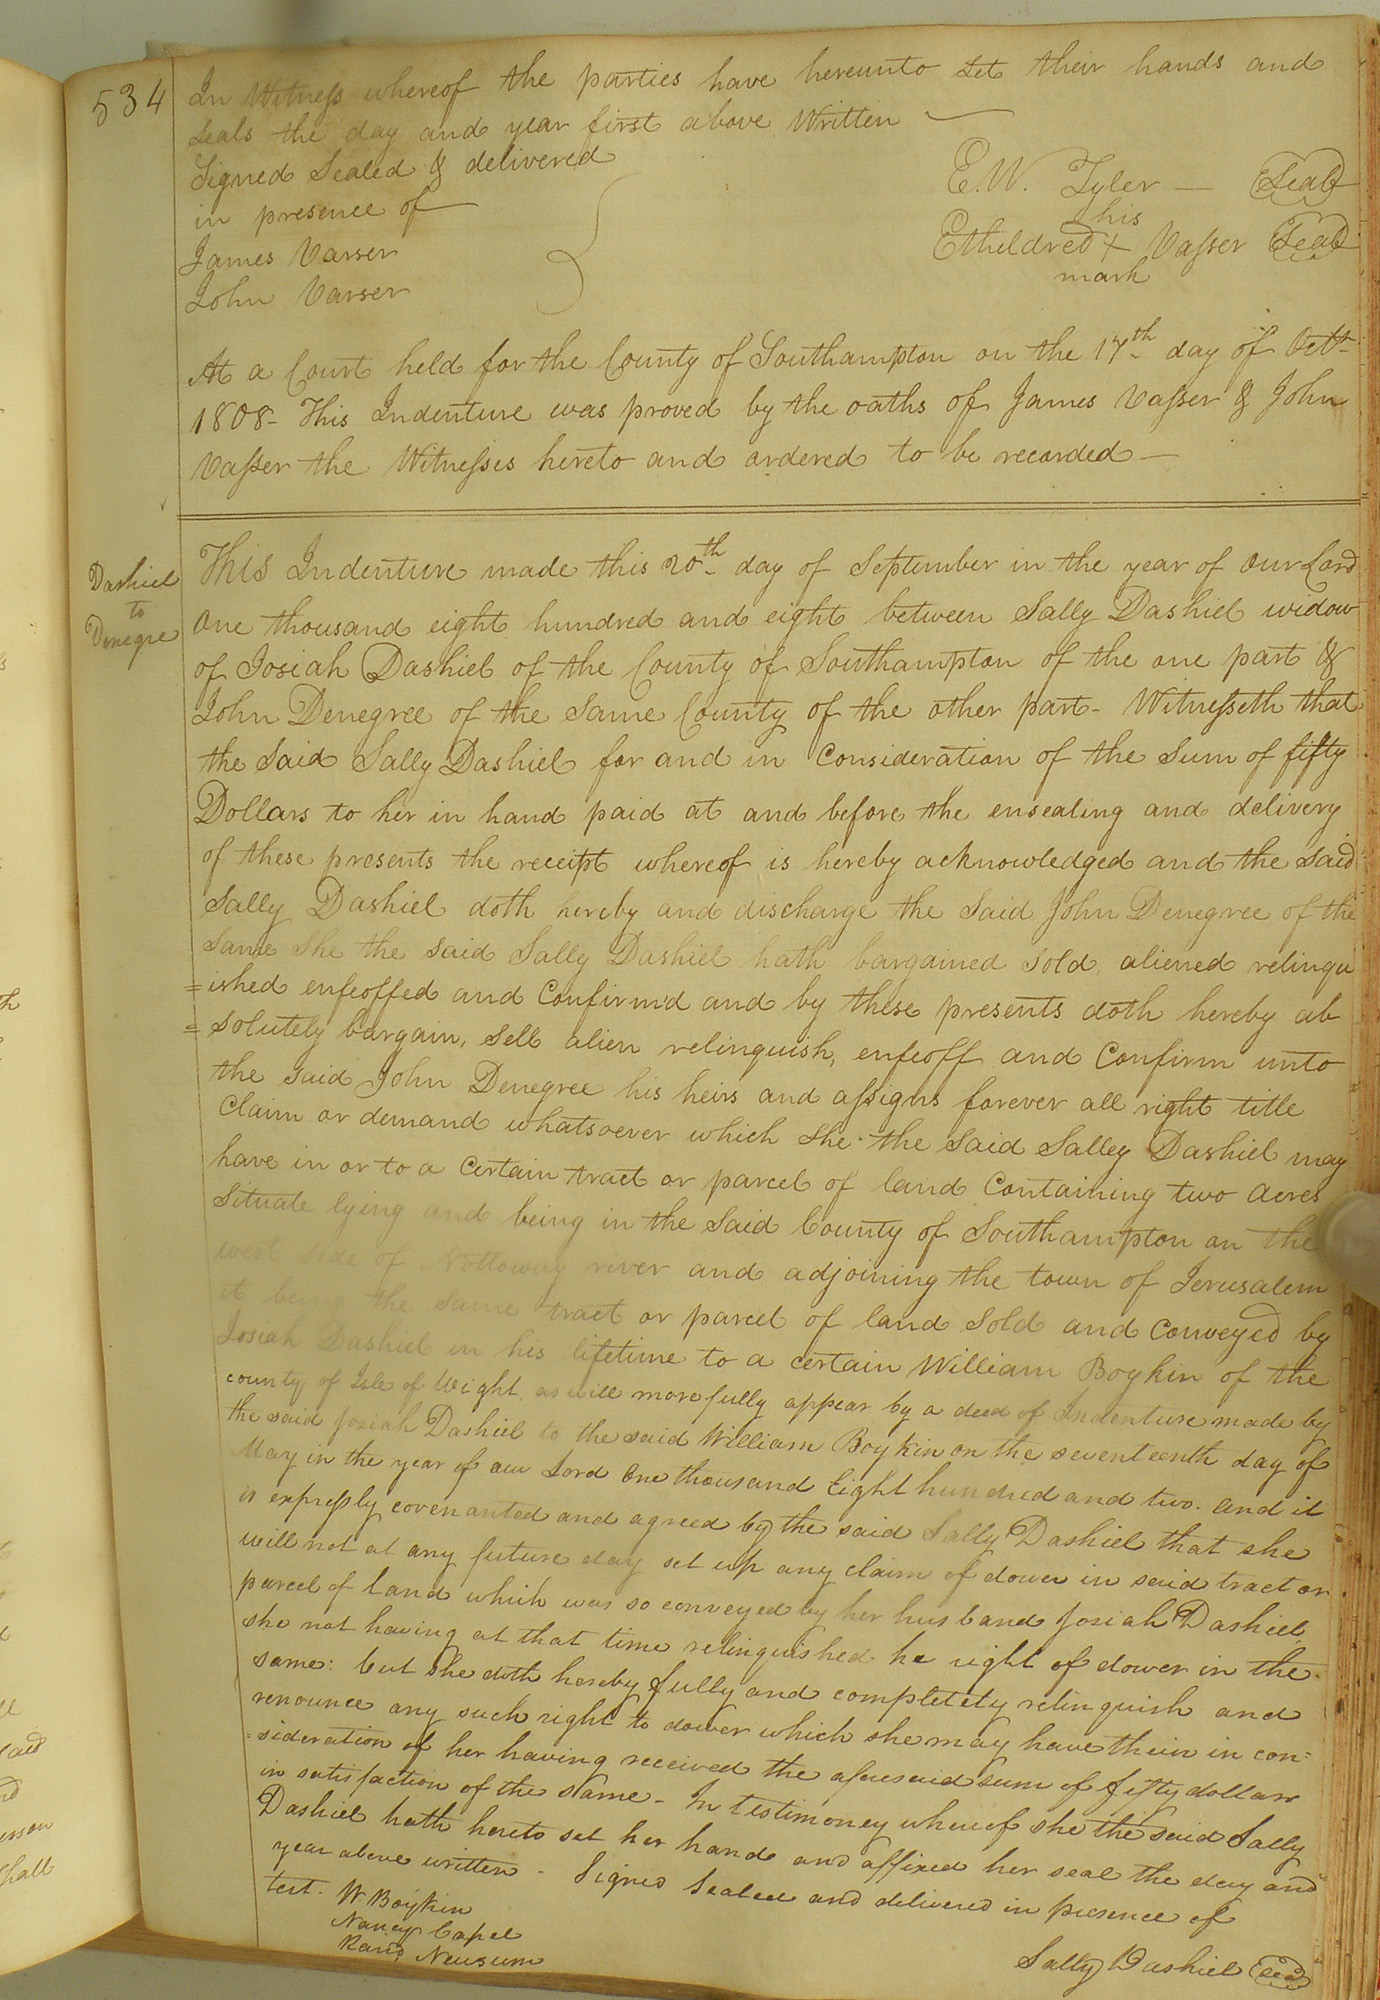 534
In Witness whereof the parties have hereunto set their hands and
seals the day and year first above Written
Signed Sealed & delivered
in presence of
James Varser
John Varser
E. W. Tyler — Seal
his
Etheldred + Vasser Seal
mark
At a Court held for the County of Southampton on the 17th day of Octr
1808 - This Indenture was proved by the oaths of James Vasser & John
Vasser the Witnesses hereto and ordered to be recorded —
Dashiel
to
Denegre
This Indenture made this 20th day of September in the year of Our Lord
One thousand eight hundred and eight between Sally Dashiel widow
of Josiah Dashiel of the County of Southampton of the one part &
John Denegree of the Same County of the other part - Witnesseth that
the Said Sally Dashiel for and in Consideration of the Sum of fifty
Dollars to her in hand paid at and before the ensealing and delivery
of these presents the receipt whereof is hereby acknowledged and the Said
Sally Dashiel doth hereby and discharge the Said John Denegree of the
Same She the said Sally Dashiel hath bargained sold, aliened relinqu
=ished enfeoffed and Confirm'd and by these presents doth hereby ab
=solutely bargain, Sell alien relinquish, enfeoff and Confirm unto
the said John Denegree his heirs and assigns forever all right title
Claim or demand whatsoever which She the Said Salley Dashiel may
have in or to a Certain tract or parcel of land Containing two Acres
Situate lying and being in the Said County of Southampton on the
west side of Nottoway river and adjoining the town of Jerusalem
it being the Same tract or parcel of land Sold and Conveyed by
Josiah Dashiel in his lifetime to a certain William Boykin of the
county of Isle of Wight, as will more fully appear by a deed of Indenture made by
the said Josiah Dashiel to the said William Boykin on the seventeenth day of
May in the year of our Lord One thousand Eight hundred and two. and it
is expressly covenanted and agreed by the said Sally Dashiel that she
will not at any future day set up any claim of dower in said tract or
parcel of land which was so conveyed by her husband Josiah Dashiel
she not having at that time relinquished he right of dower in the
same: but she doth hereby fully and completely relinquish and
renounce any such right to dower which she may have thein in con=
=sideration of her having received the aforesaid sum of fifty dollars
in satisfaction of the same - In testimoney whereof she the said Sally
Dashiel hath hereto set her hand and affixed her seal the day and
year above written - Signed Sealed and delivered in presence of
test. W. Boykin
Nancy Capel
Newsum
Sally Dashiel seal